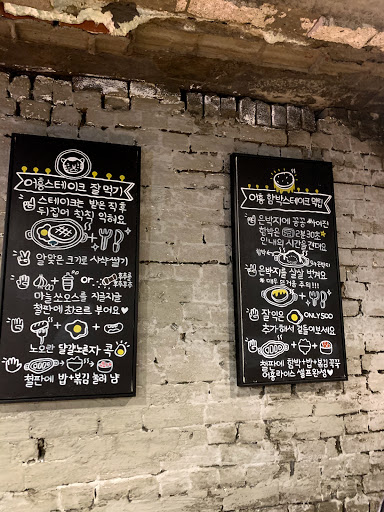 어흥스테이크 잘 먹기
스테이크는 받은 직후
뒤집어 칙칙 익혀요
알맞은 크기로 사삭 썰기
or
마늘쏘오스를 지글지글
철판에 촤르르 부어요♥
노오란 달걀노른자 콕
철판에 밥+볶음 눌러 냠
어흥 함박스테이크 먹팁
은박지에 꽁꽁 싸여진
함박은 2분30초
안내의 시간을 견뎌요
은박지를 살살 벗겨요
※매우 뜨거움 주의!!!
잘 익은 ONLY 500
추가해서 곁들여보세요
철판에 함박+밥+볶음 꾹꾹
어흥라이스 셀프완성♥